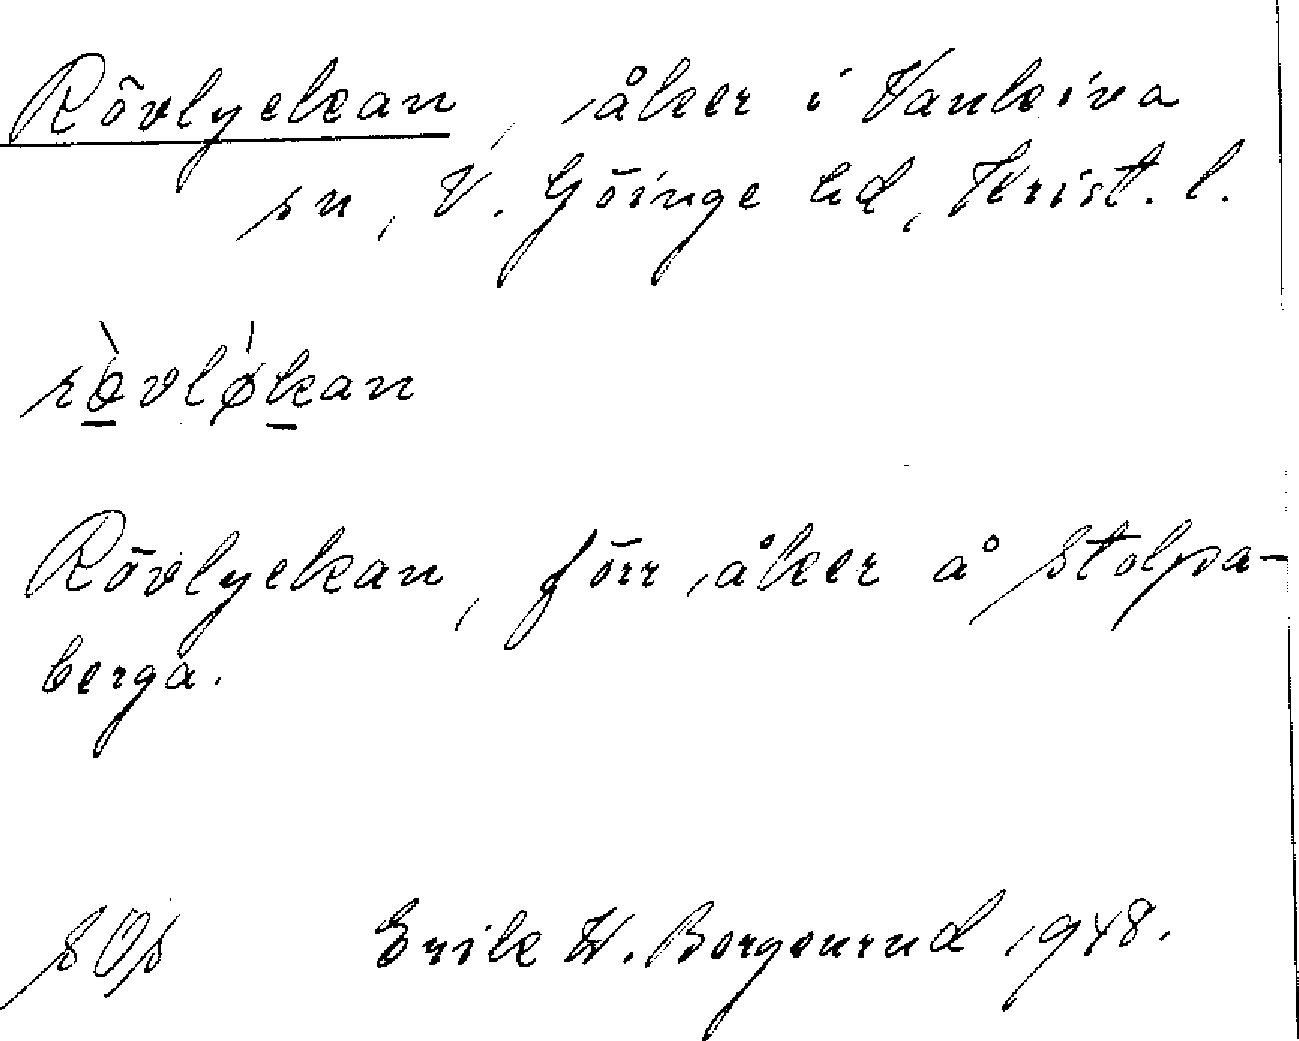 Rövlyckan, åker i Vankiva
sn, V. Göinge hd, Krist. l.
rövløkan
Rövlyckan, förr åker å Stolpa-
berga.
SOS Erik W.
1948.